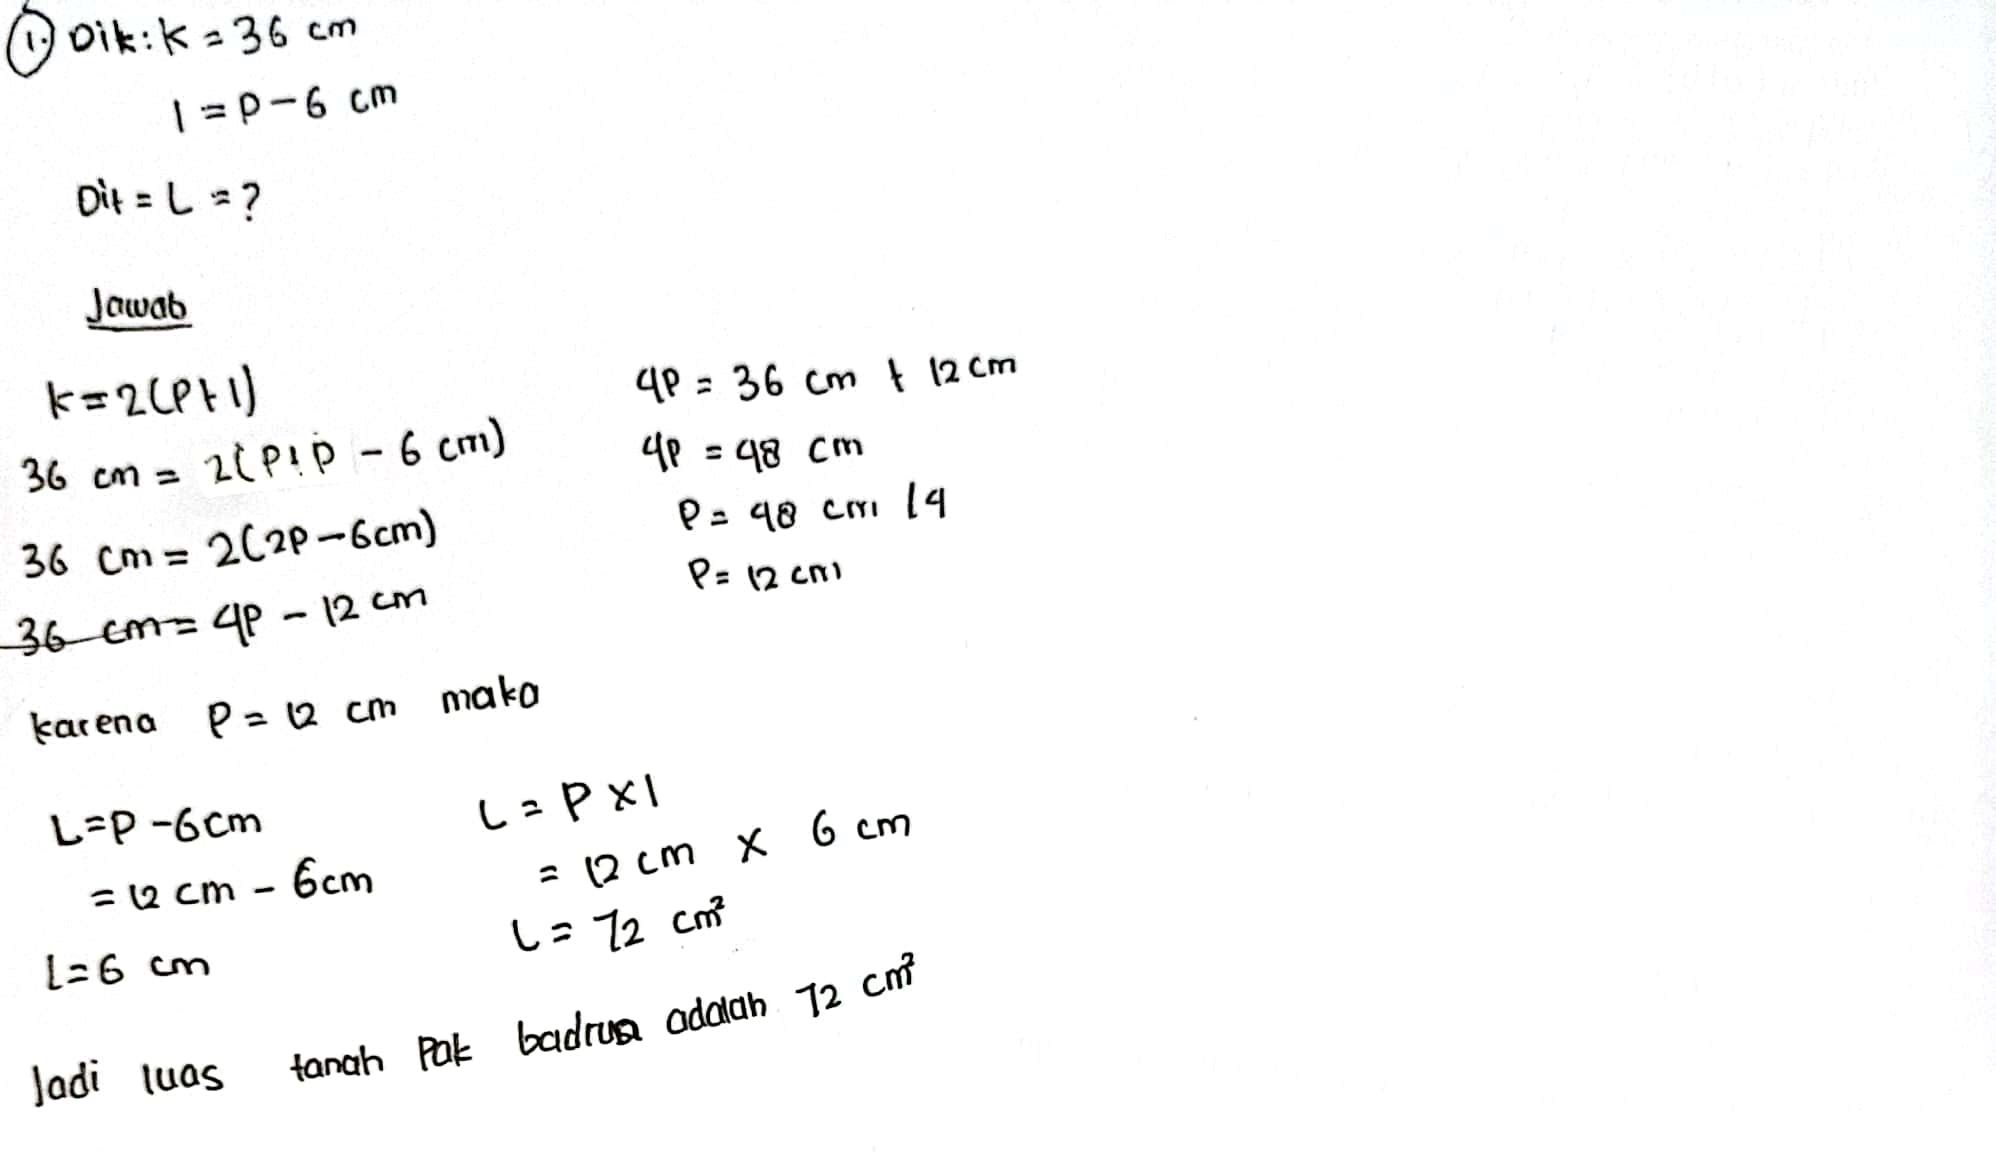 1. Dik: K = 36 cm
l = P - 6 cm
Dit = L = ?
Jawab
K = 2(P+l)
36 cm = 2(P+P - 6 cm)
36 cm = 2(2P - 6cm)
36 cm = 4P - 12 cm
4P = 36 cm + 12 cm
4P = 48 cm
P = 48 cm / 4
P = 12 cm
karena P = 12 cm maka
L = P - 6cm
= 12 cm - 6cm
l = 6 cm
L = P x l
= 12 cm x 6 cm
L = 72 cm²
Jadi luas tanah Pak adalah 72 cm²